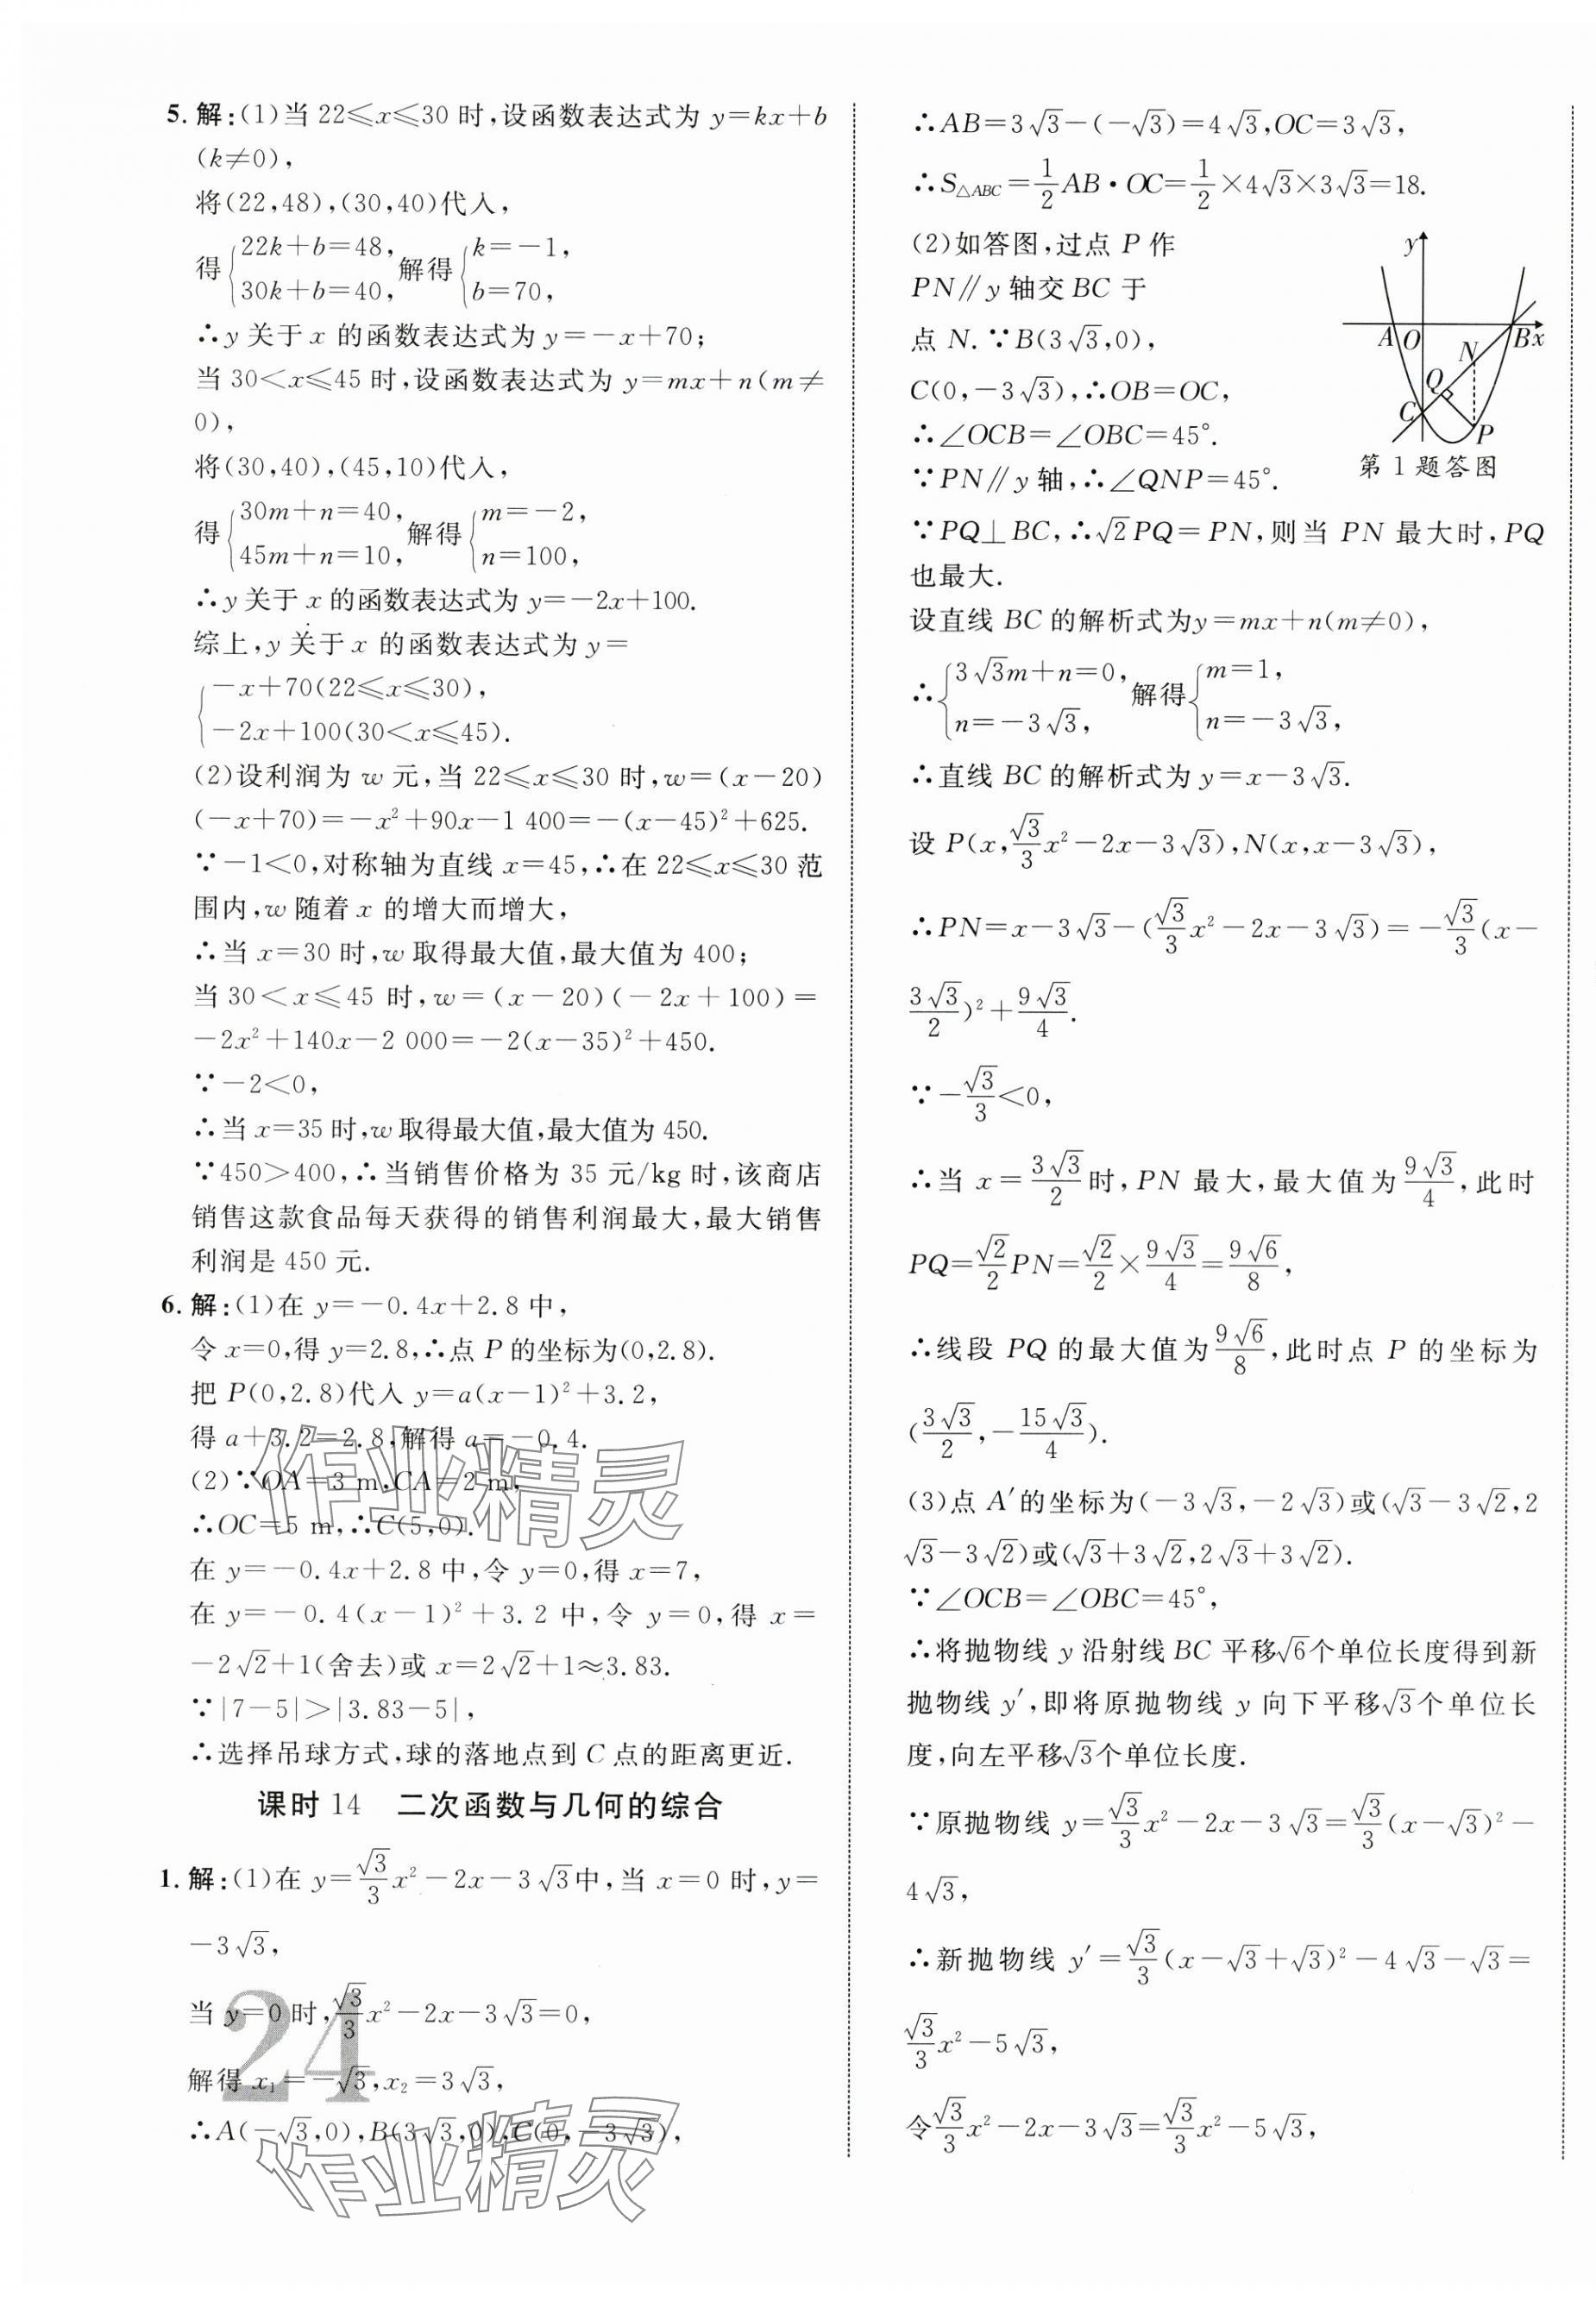 5. 解:(1)当 22≤x≤30 时,设函数表达式为 y=kx+b
(k≠0),
将(22,48),(30,40)代入,
得{22k+b=48, 30k+b=40, 解得{k=-1, b=70,
∴y 关于 x 的函数表达式为 y=-x+70;
当 30<x≤45 时,设函数表达式为 y=mx+n(m≠
0),
将(30,40),(45,10)代入,
得{30m+n=40, 45m+n=10, 解得{m=-2, n=100,
∴y 关于 x 的函数表达式为 y=-2x+100.
综上,y 关于 x 的函数表达式为 y=
{-x+70(22≤x≤30),
-2x+100(30<x≤45).
(2)设利润为 w 元,当 22≤x≤30 时,w=(x-20)
(-x+70)=-x²+90x-1 400=-(x-45)²+625.
∵-1<0,对称轴为直线 x=45,∴在 22≤x≤30 范
围内,w 随着 x 的增大而增大,
∴当 x=30 时,w 取得最大值,最大值为 400;
当 30<x≤45 时,w=(x-20)(-2x+100)=
-2x²+140x-2 000=-2(x-35)²+450.
∵-2<0,
∴当 x=35 时,w 取得最大值,最大值为 450.
∵450>400,∴当销售价格为 35 元/kg 时,该商店
销售这款食品每天获得的销售利润最大,最大销售
利润是 450 元.
6. 解:(1)在 y=-0.4x+2.8 中,
令 x=0,得 y=2.8,∴点 P 的坐标为(0,2.8).
把 P(0,2.8)代入 y=a(x-1)²+3.2,
得 a+3.2=2.8,解得 a=-0.4.
(2)∵OA=3 m,CA=2 m,
∴OC=5 m,∴C(5,0).
在 y=-0.4x+2.8 中,令 y=0,得 x=7,
在 y=-0.4(x-1)²+3.2 中,令 y=0,得 x=
-2√2+1(舍去)或 x=2√2+1≈3.83.
∵|7-5|>|3.83-5|,
∴选择吊球方式,球的落地点到 C 点的距离更近.
课时 14 二次函数与几何的综合
1. 解:(1)在 y=√3/3x²-2x-3√3中,当 x=0 时,y=
-3√3,
当 y=0 时,√3/3x²-2x-3√3=0,
解得 x₁=-√3,x₂=3√3,
∴A(-√3,0),B(3√3,0),C(0,-3√3),
24
作业精灵
作业精灵
∴AB=3√3-(-√3)=4√3,OC=3√3,
∴S△ABC=1/2AB·OC=1/2×4√3×3√3=18.
(2)如答图,过点 P 作
PN∥y 轴交 BC 于
点 N.∵B(3√3,0),
C(0,-3√3),∴OB=OC,
∴∠OCB=∠OBC=45°.
∵PN∥y 轴,∴∠QNP=45°.
y
A O B x
N
Q
C
P
第 1 题答图
∵PQ⊥BC,∴√2PQ=PN,则当 PN 最大时,PQ
也最大.
设直线 BC 的解析式为y=mx+n(m≠0),
∴{3√3m+n=0, n=-3√3, 解得{m=1, n=-3√3,
∴直线 BC 的解析式为 y=x-3√3.
设 P(x,√3/3x²-2x-3√3),N(x,x-3√3),
∴PN=x-3√3-(√3/3x²-2x-3√3)=-√3/3(x-
3√3/2)²+9√3/4.
∵-√3/3<0,
∴当 x=3√3/2时,PN 最大,最大值为9√3/4,此时
PQ=√2/2PN=√2/2×9√3/4=9√6/8,
∴线段 PQ 的最大值为9√6/8,此时点 P 的坐标为
(3√3/2,-15√3/4).
(3)点 A′的坐标为(-3√3,-2√3)或(√3-3√2,2
√3-3√2)或(√3+3√2,2√3+3√2).
∵∠OCB=∠OBC=45°,
∴将抛物线 y 沿射线 BC 平移√6个单位长度得到新
抛物线 y′,即将原抛物线 y 向下平移√3个单位长
度,向左平移√3个单位长度.
∵原抛物线 y=√3/3x²-2x-3√3=√3/3(x-√3)²-
4√3,
∴新抛物线 y′=√3/3(x-√3+√3)²-4√3-√3=
√3/3x²-5√3,
令√3/3x²-2x-3√3=√3/3x²-5√3,